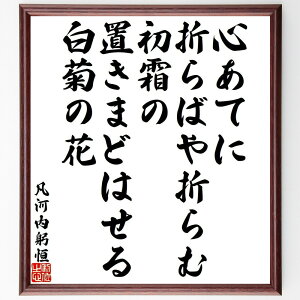 心あてに
折らばや折らむ
初霜の
置きまどはせる
白菊の花
凡河内躬恒